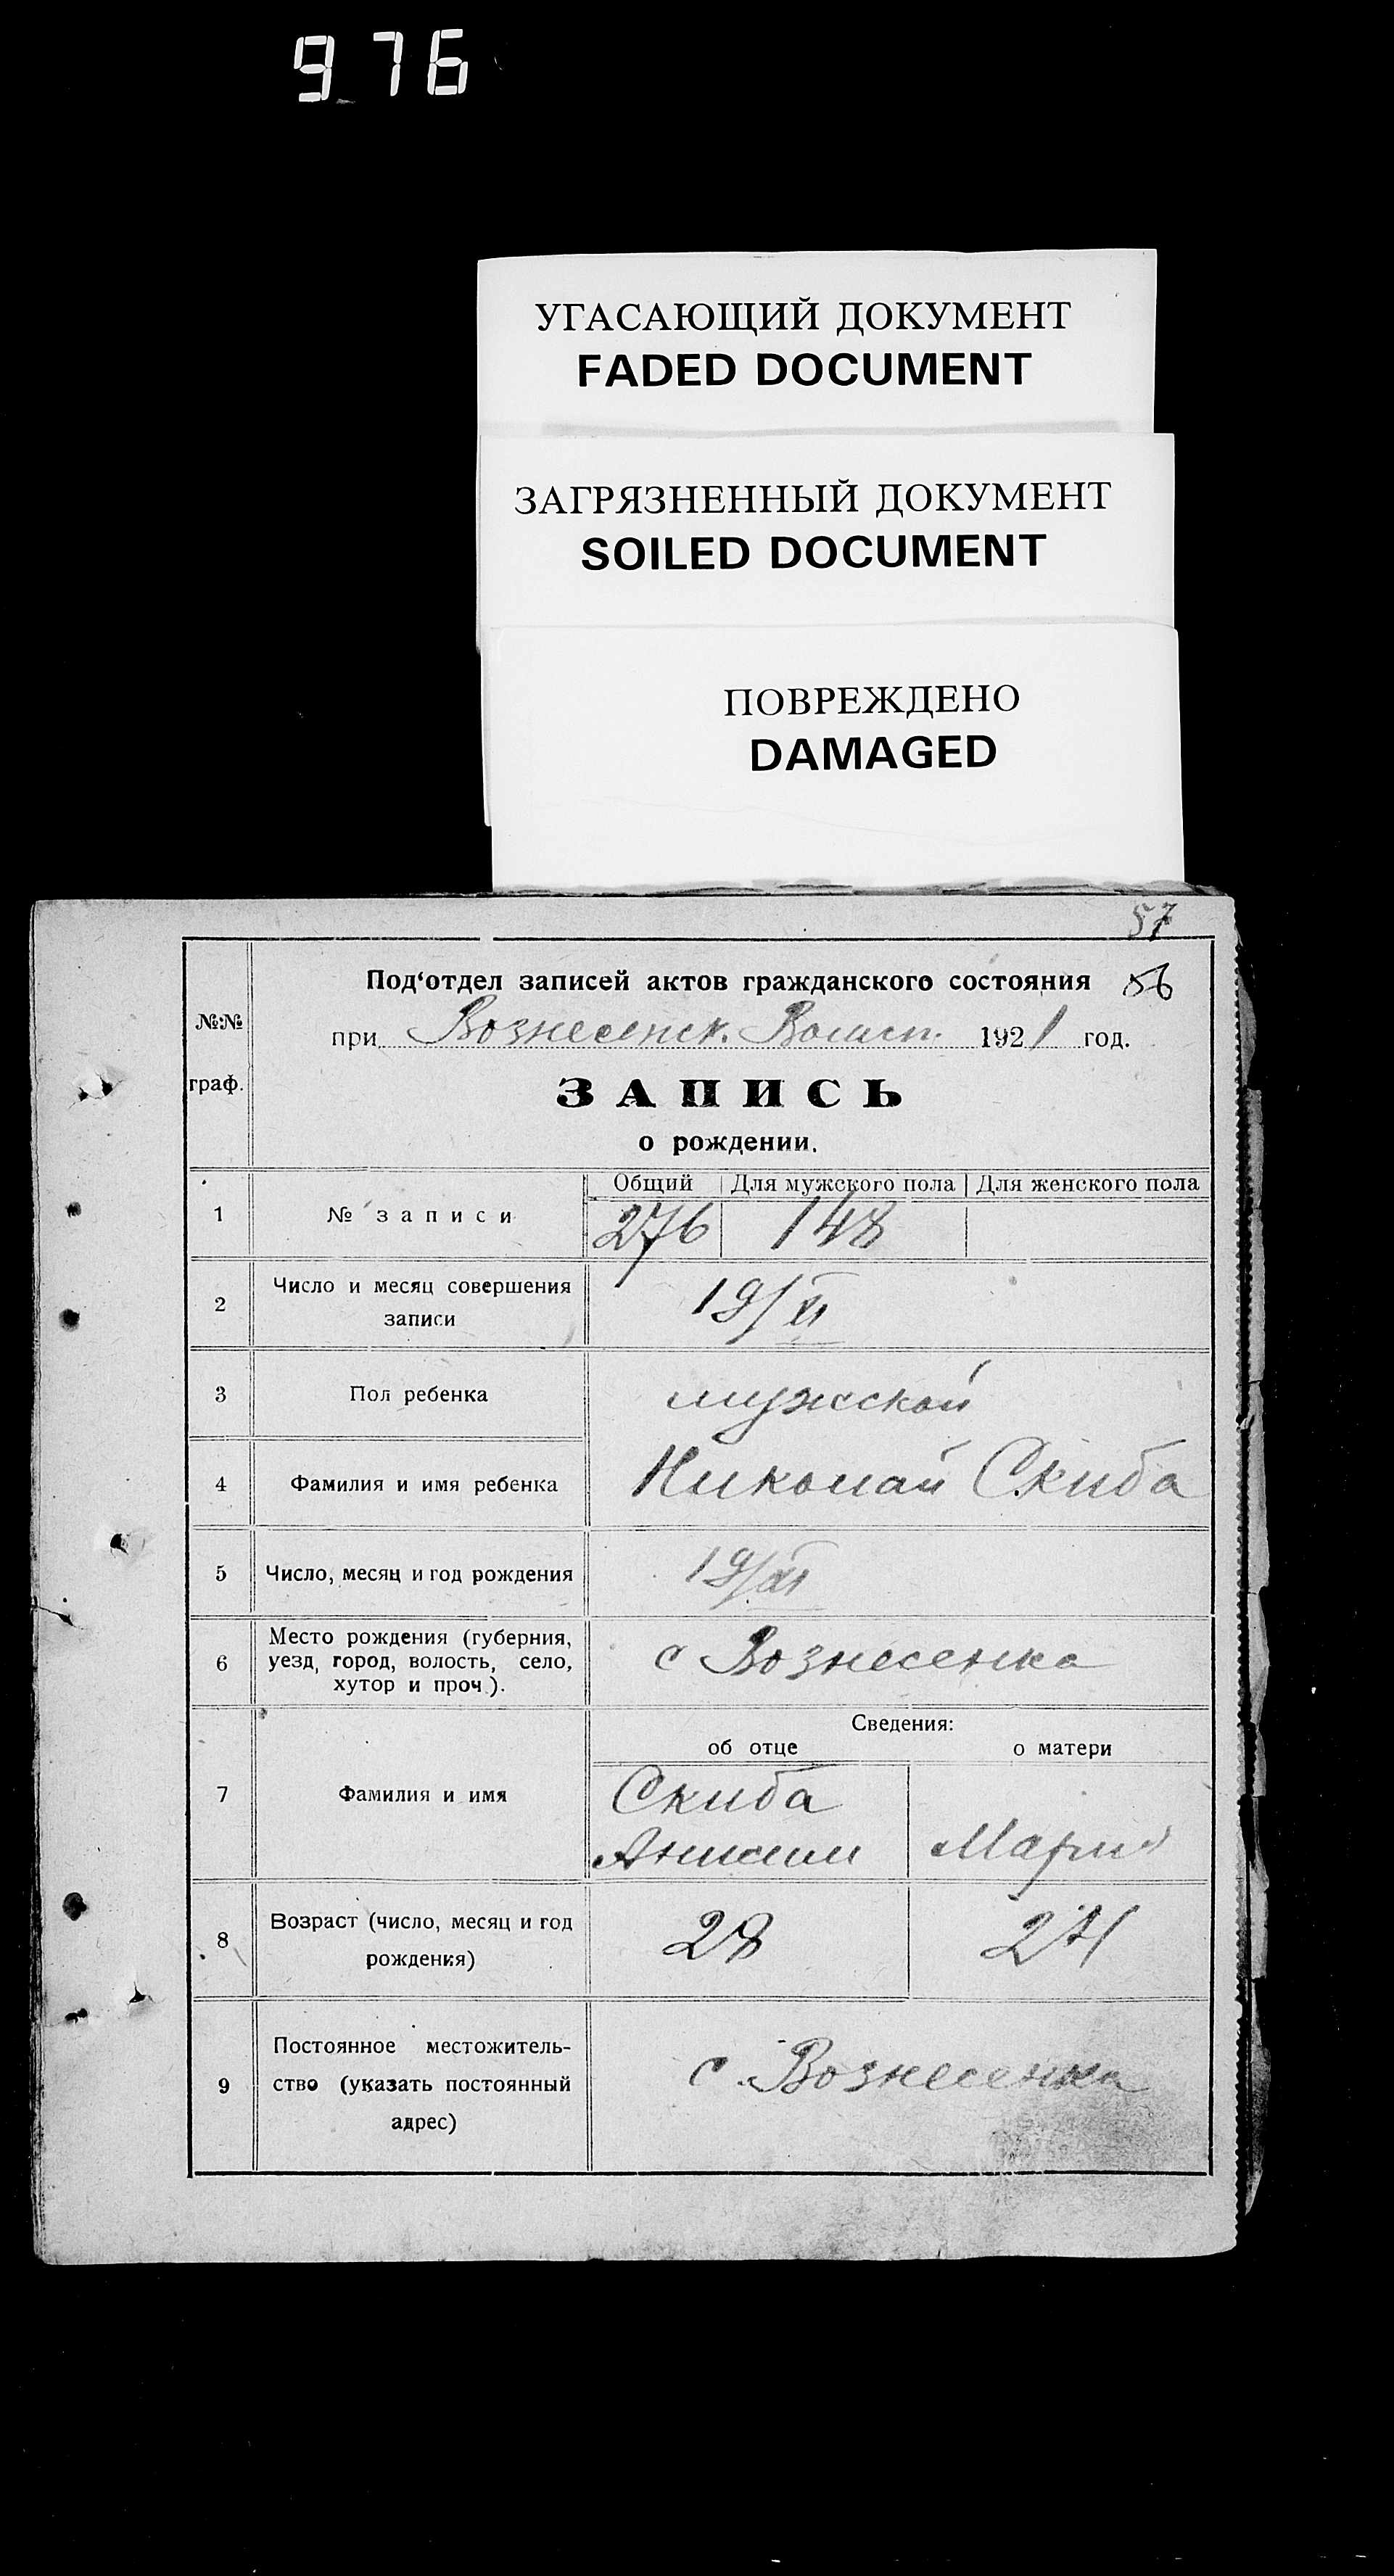 976
УГАСАЮЩИЙ ДОКУМЕНТ
FADED DOCUMENT
ЗАГРЯЗНЕННЫЙ ДОКУМЕНТ
SOILED DOCUMENT
ПОВРЕЖДЕНО
DAMAGED
57
Под‘отдел записей актов гражданского состояния 56
№№ при Вознесенск. 1921 год.
граф.
ЗАПИСЬ
о рождении.
Общий Для мужского пола Для женского пола
1 № записи 276 148
2 Число и месяц совершения
записи 19/XI
3 Пол ребенка мужской
4 Фамилия и имя ребенка Николай Скиба
5 Число, месяц и год рождения 19/XI
6 Место рождения (губерния,
уезд, город, волость, село,
хутор и проч.). с Вознесенка
Сведения:
об отце о матери
7 Фамилия и имя Скиба
Мария
8 Возраст (число, месяц и год
рождения) 28
9 Постоянное местожитель-
ство (указать постоянный
адрес) с. Вознесенка